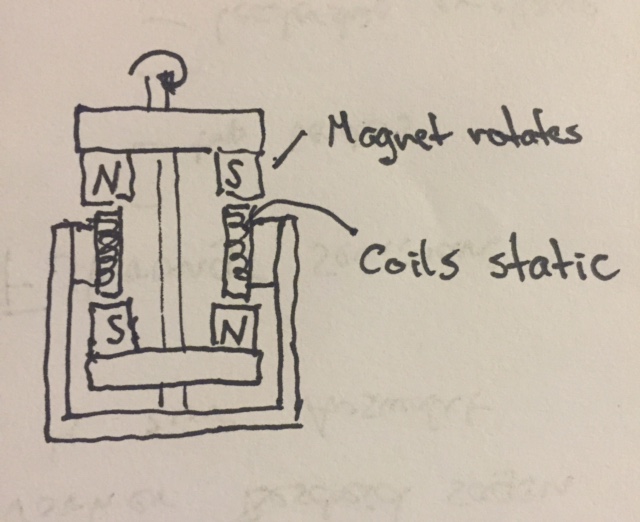 Magnet rotates
N S
Coils static
S N